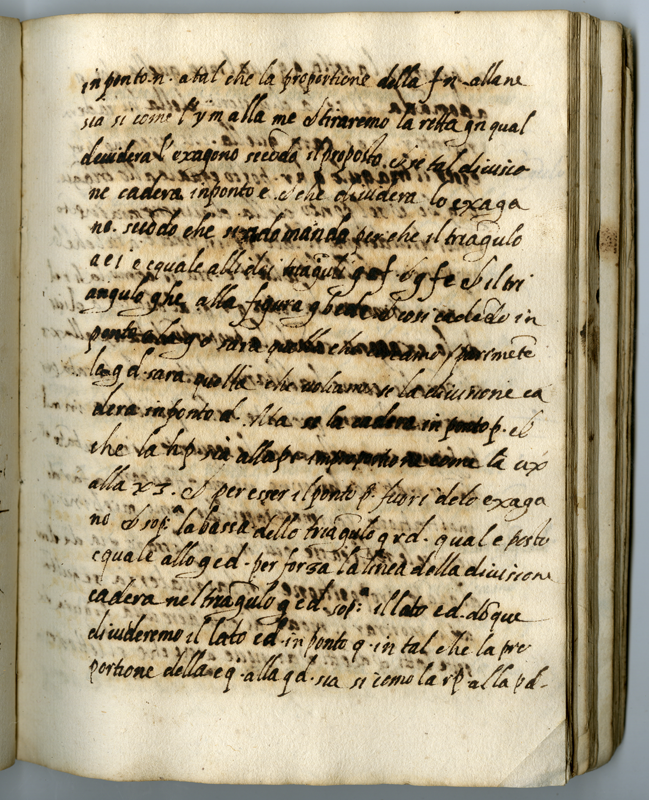 in ponto .n. a tal che la proportione della fn alla ne
sia si come l'ym alla me & tiraremo la retta gn qual
deuidera l'exagono secōdo il proposto. & se tal diuisio
ne cadera in ponto e & che diuidera lo exaga
no. secōdo che si adomanda per che il triāgulo
aei e equale alli dui triāguli gaf & gfe & il tri
angulo ghe alla figura & cosi cadēdo in
ponto
la gd. sara quella che uoliamo se la diuisione ca
dera in ponto d. se la cadera in ponto p. &
che la hp sia alla come la ux
alla xz. & per esser il ponto p. fuori delo exaga
no & sopᵃ la bassa dello triāgulo grd. qual e posto
equale allo ged. per forza la linea della diuisione
cadera nel triāgulo ged. sopᵃ il lato ed. dōque
diuideremo il lato ed. in ponto q. in tal che la pro
portione della eq. alla qd. sia si como la rp. alla pd.